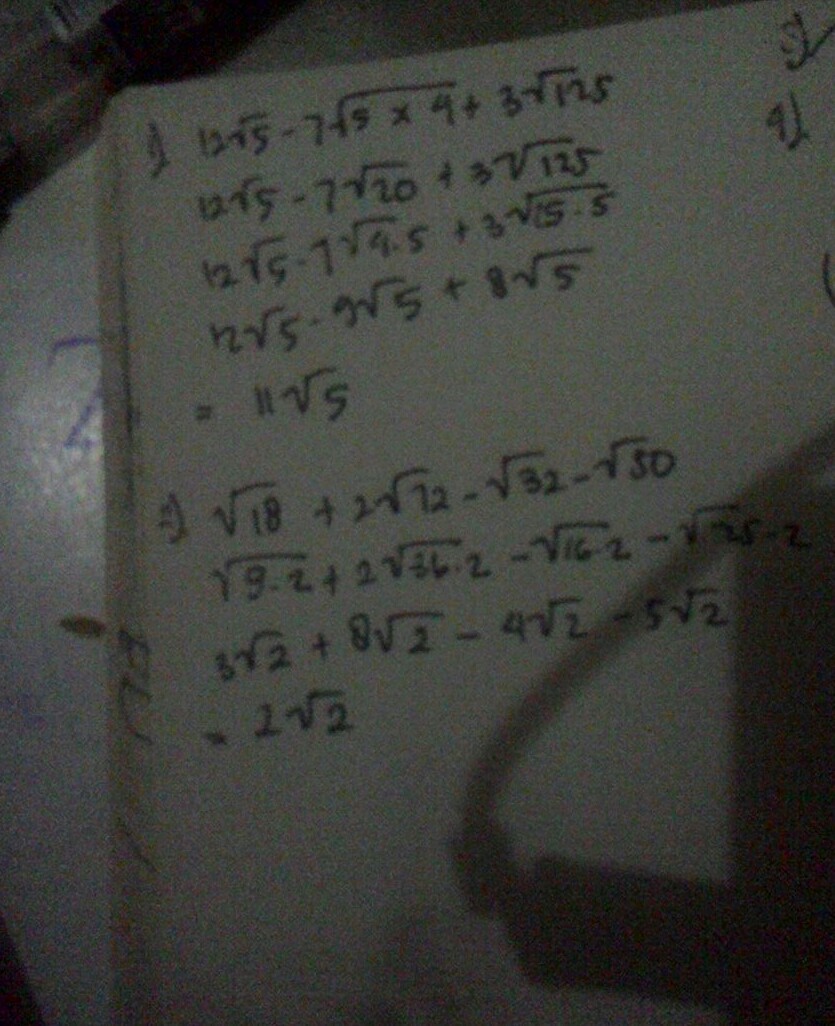 1) 12√5 - 7√5 x 4 + 3√125
12√5 - 7√20 + 3√125
12√5 - 7√4.5 + 3√15.5
12√5 - 9√5 + 8√5
= 11√5
2) √18 + 2√72 - √32 - √50
√9.2 + 2√36.2 - √16.2 - √25.2
3√2 + 8√2 - 4√2 - 5√2
= 2√2
3)
4)